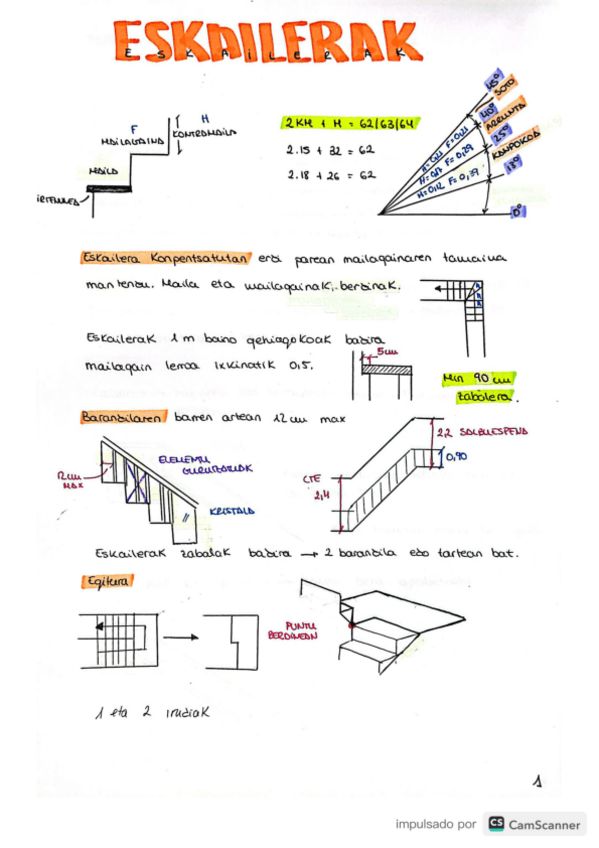 ESKAILERAK
ESKAILERAK
F
MAILAGAINA
H
KONTRAMAILA
MAILA
IRTENUNEA
2KH + H = 62/63/64
2.15 + 32 = 62
2.18 + 26 = 62
45°
SOTO
40°
ARRUNTA
25°
KANPOKOA
18°
0°
H = 0,17 F = 0,29
H = 0,12 F = 0,39
Eskailera Konpentsatutan erdi parean mailagainaren tamaina
mantendu. Maila eta mailagainak berdinak.
Eskailerak 1 m baino gehiagokoak badira
mailagain lerroa ixkinatik 0,5.
5cm
Min 90 cm
zabalera.
Barandilaren barren artean 12 cm max
12cm
MAX
ELEMENTU
GURUTZATUAK
KRISTALA
CTE
2,4
2,2 SALBUESPENA
0,90
Eskailerak zabalak badira → 2 barandila edo tartean bat.
Egitura
PUNTU
BERDINEAN
1 eta 2 irudiak
1
impulsado por CS CamScanner